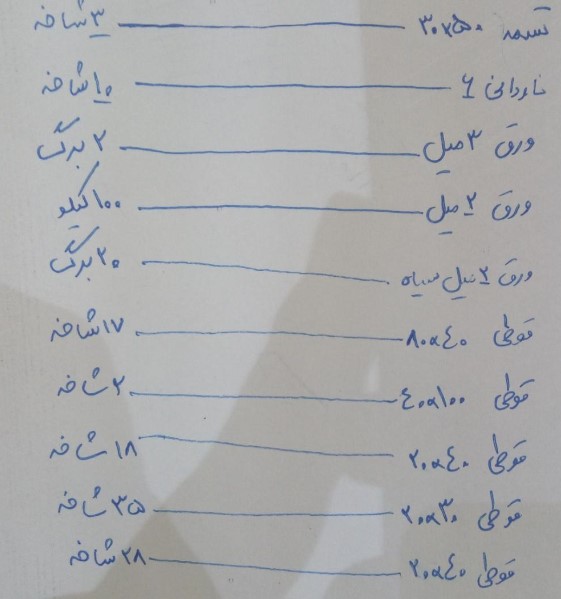 تسمه ۳۰×۵۰ — ۳ شاخه
ناودانی ٦ — ۱۰ شاخه
ورق ۳ میل — ۲ برگ
ورق ۲ میل — ۱۰۰ کیلو
ورق ۲ میل سیاه — ۲۰ برگ
قوطی ۸۰×٤۰ — ۱۷ شاخه
قوطی ٤۰×۱۰۰ — ۲ شاخه
قوطی ۲۰×٤۰ — ۱۸ شاخه
قوطی ۲۰×۳۰ — ۳۵ شاخه
قوطی ۲۰×٤۰ — ۲۸ شاخه